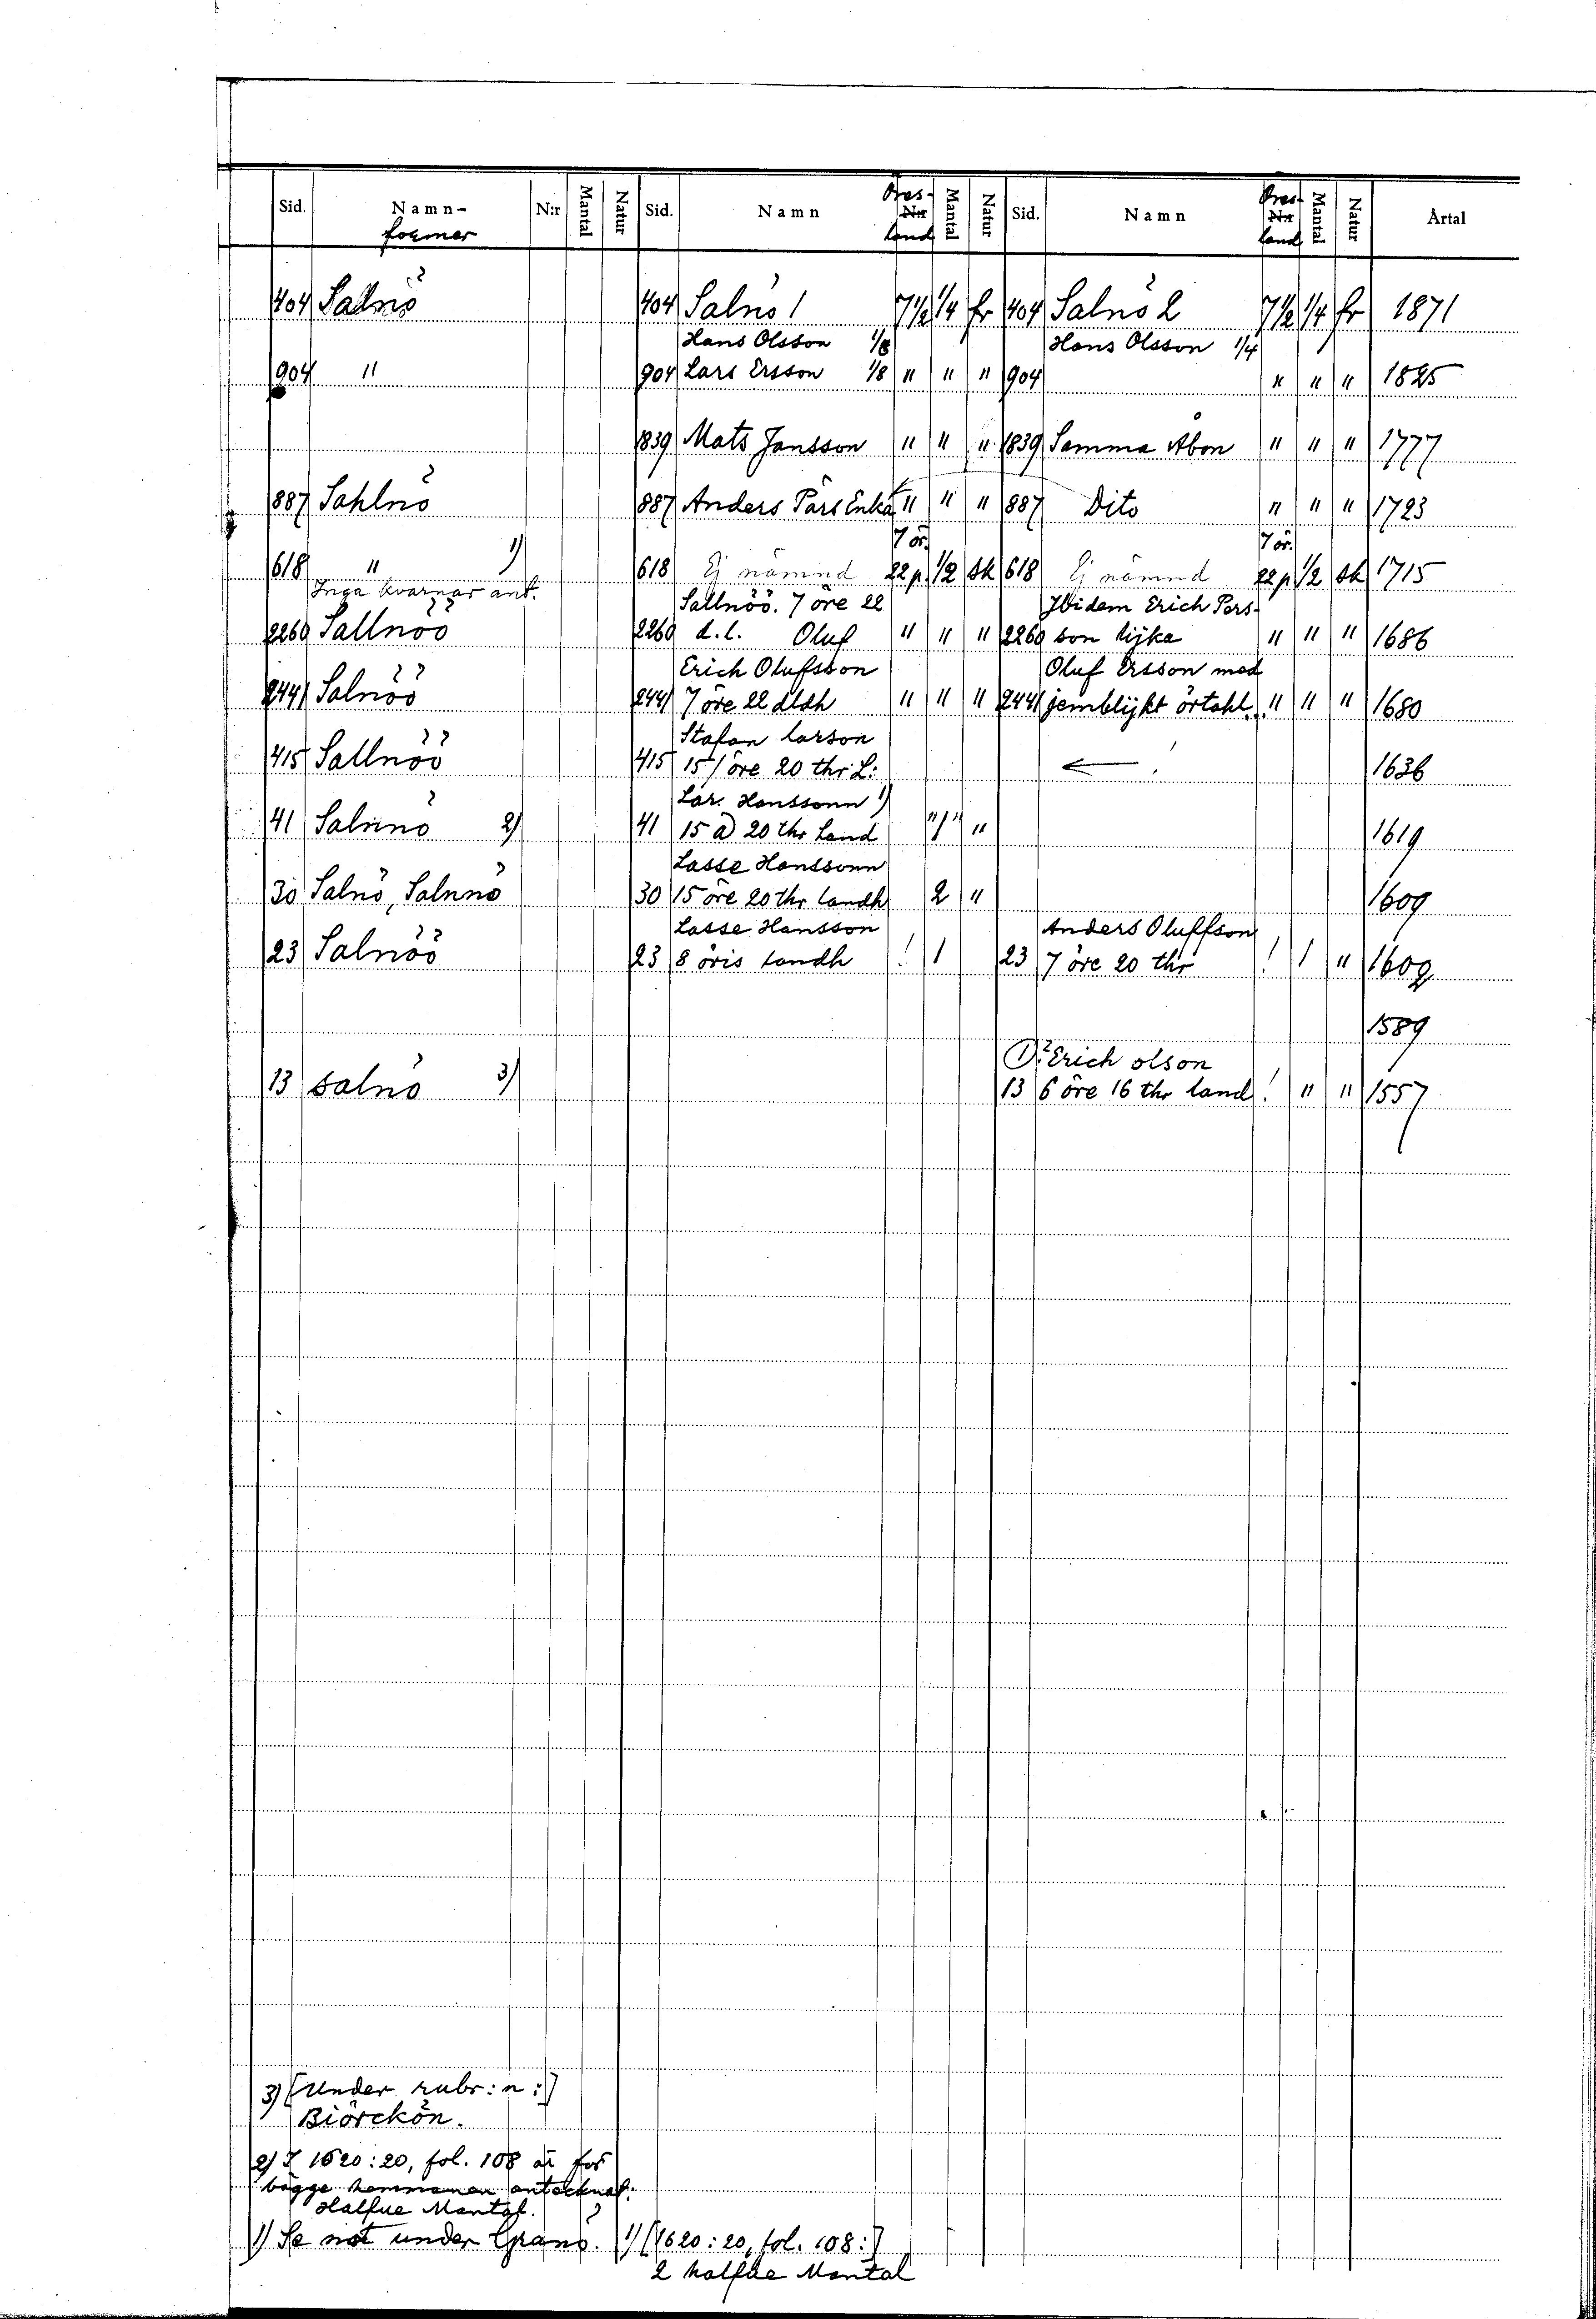 Sid. Namn- N:r Mantal Natur Sid. Namn Öres- N:r Mantal Natur Sid. Namn Öres- N:r Mantal Natur Årtal
former land land
404 Salnö 404 Salnö 1 7 1/2 1/4 fr 404 Salnö 2 7 1/2 1/4 fr 1871
Hans Olsson 1/8 Hans Olsson 1/4
904 " 904 Lars Ersson 1/8 " " " 904 " " " 1825
1839 Mats Jansson " " " 1839 Samma Åbon " " " 1777
887 Sahlnö 887 Anders Pärs Enka " " " 887 Dito " " " 1723
7 ör. 7 ör.
618 " 1) 618 Ej nämnd 22 p. 1/2 sk 618 Ej nämnd 22 p. 1/2 sk 1715
Inga kvarnar ant. Sallnöö. 7 öre 22 Ibidem Erich Pers-
2260 Sallnöö 2260 d.l. Oluf " " " 2260 son lijka " " " 1686
Erich Olufsson Oluf Ersson med
2441 Salnöö 2441 7 öre 22 dldh " " " 2441 jemblijkt örtahl " " " 1680
Stafan larson
415 Sallnöö 415 15 / öre 20 thr L: ← 1636
Lar. Hanssonn 1)
41 Salnnö 2) 41 15 a) 20 thr Land "1" " 1619
Lasse Hanssonn
30 Salnö, Salnnö 30 15 öre 20 thr landh 2 " 1609
Lasse Hansson Anders Oluffson
23 Salnöö 23 8 öris landh ! 1 23 7 öre 20 thr ! 1 " 1602
1589
D:² Erich olson
13 salnö 3) 13 6 öre 16 thr land ! " " 1557
3) [Under rubr:n:]
Biörckön.
2) I 1620:20, fol. 108 är för
bägge hemmanen antecknat:
Halfue Mantal.
1) Se not under Granö. 1) [1620:20, fol. 108:]
2 halffue Mantal